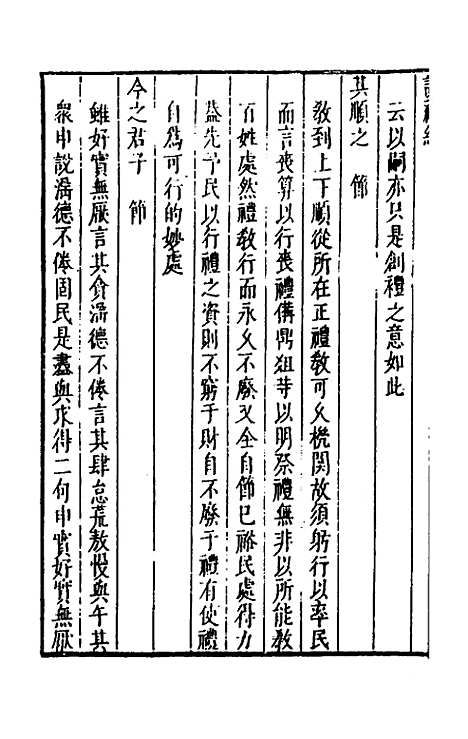 云以嗣亦只是創禮之意如此
其順之　節
敎到上下順從所在正禮敎可久機関故須躬行以率民
而言喪算以行喪禮備鼎俎等以明祭禮無非以所能敎
百姓處然禮敎行而永久不廢又全自節已裕民處得力
蓋先予民以行禮之資則不窮于財自不廢于禮有使禮
自爲可行的妙處
今之君子　節
雖好實無厭言其貪淫德不倦言其肆怠荒敖慢與午其
衆申說淫德不倦固民是盡與求得二句申實好實無厭